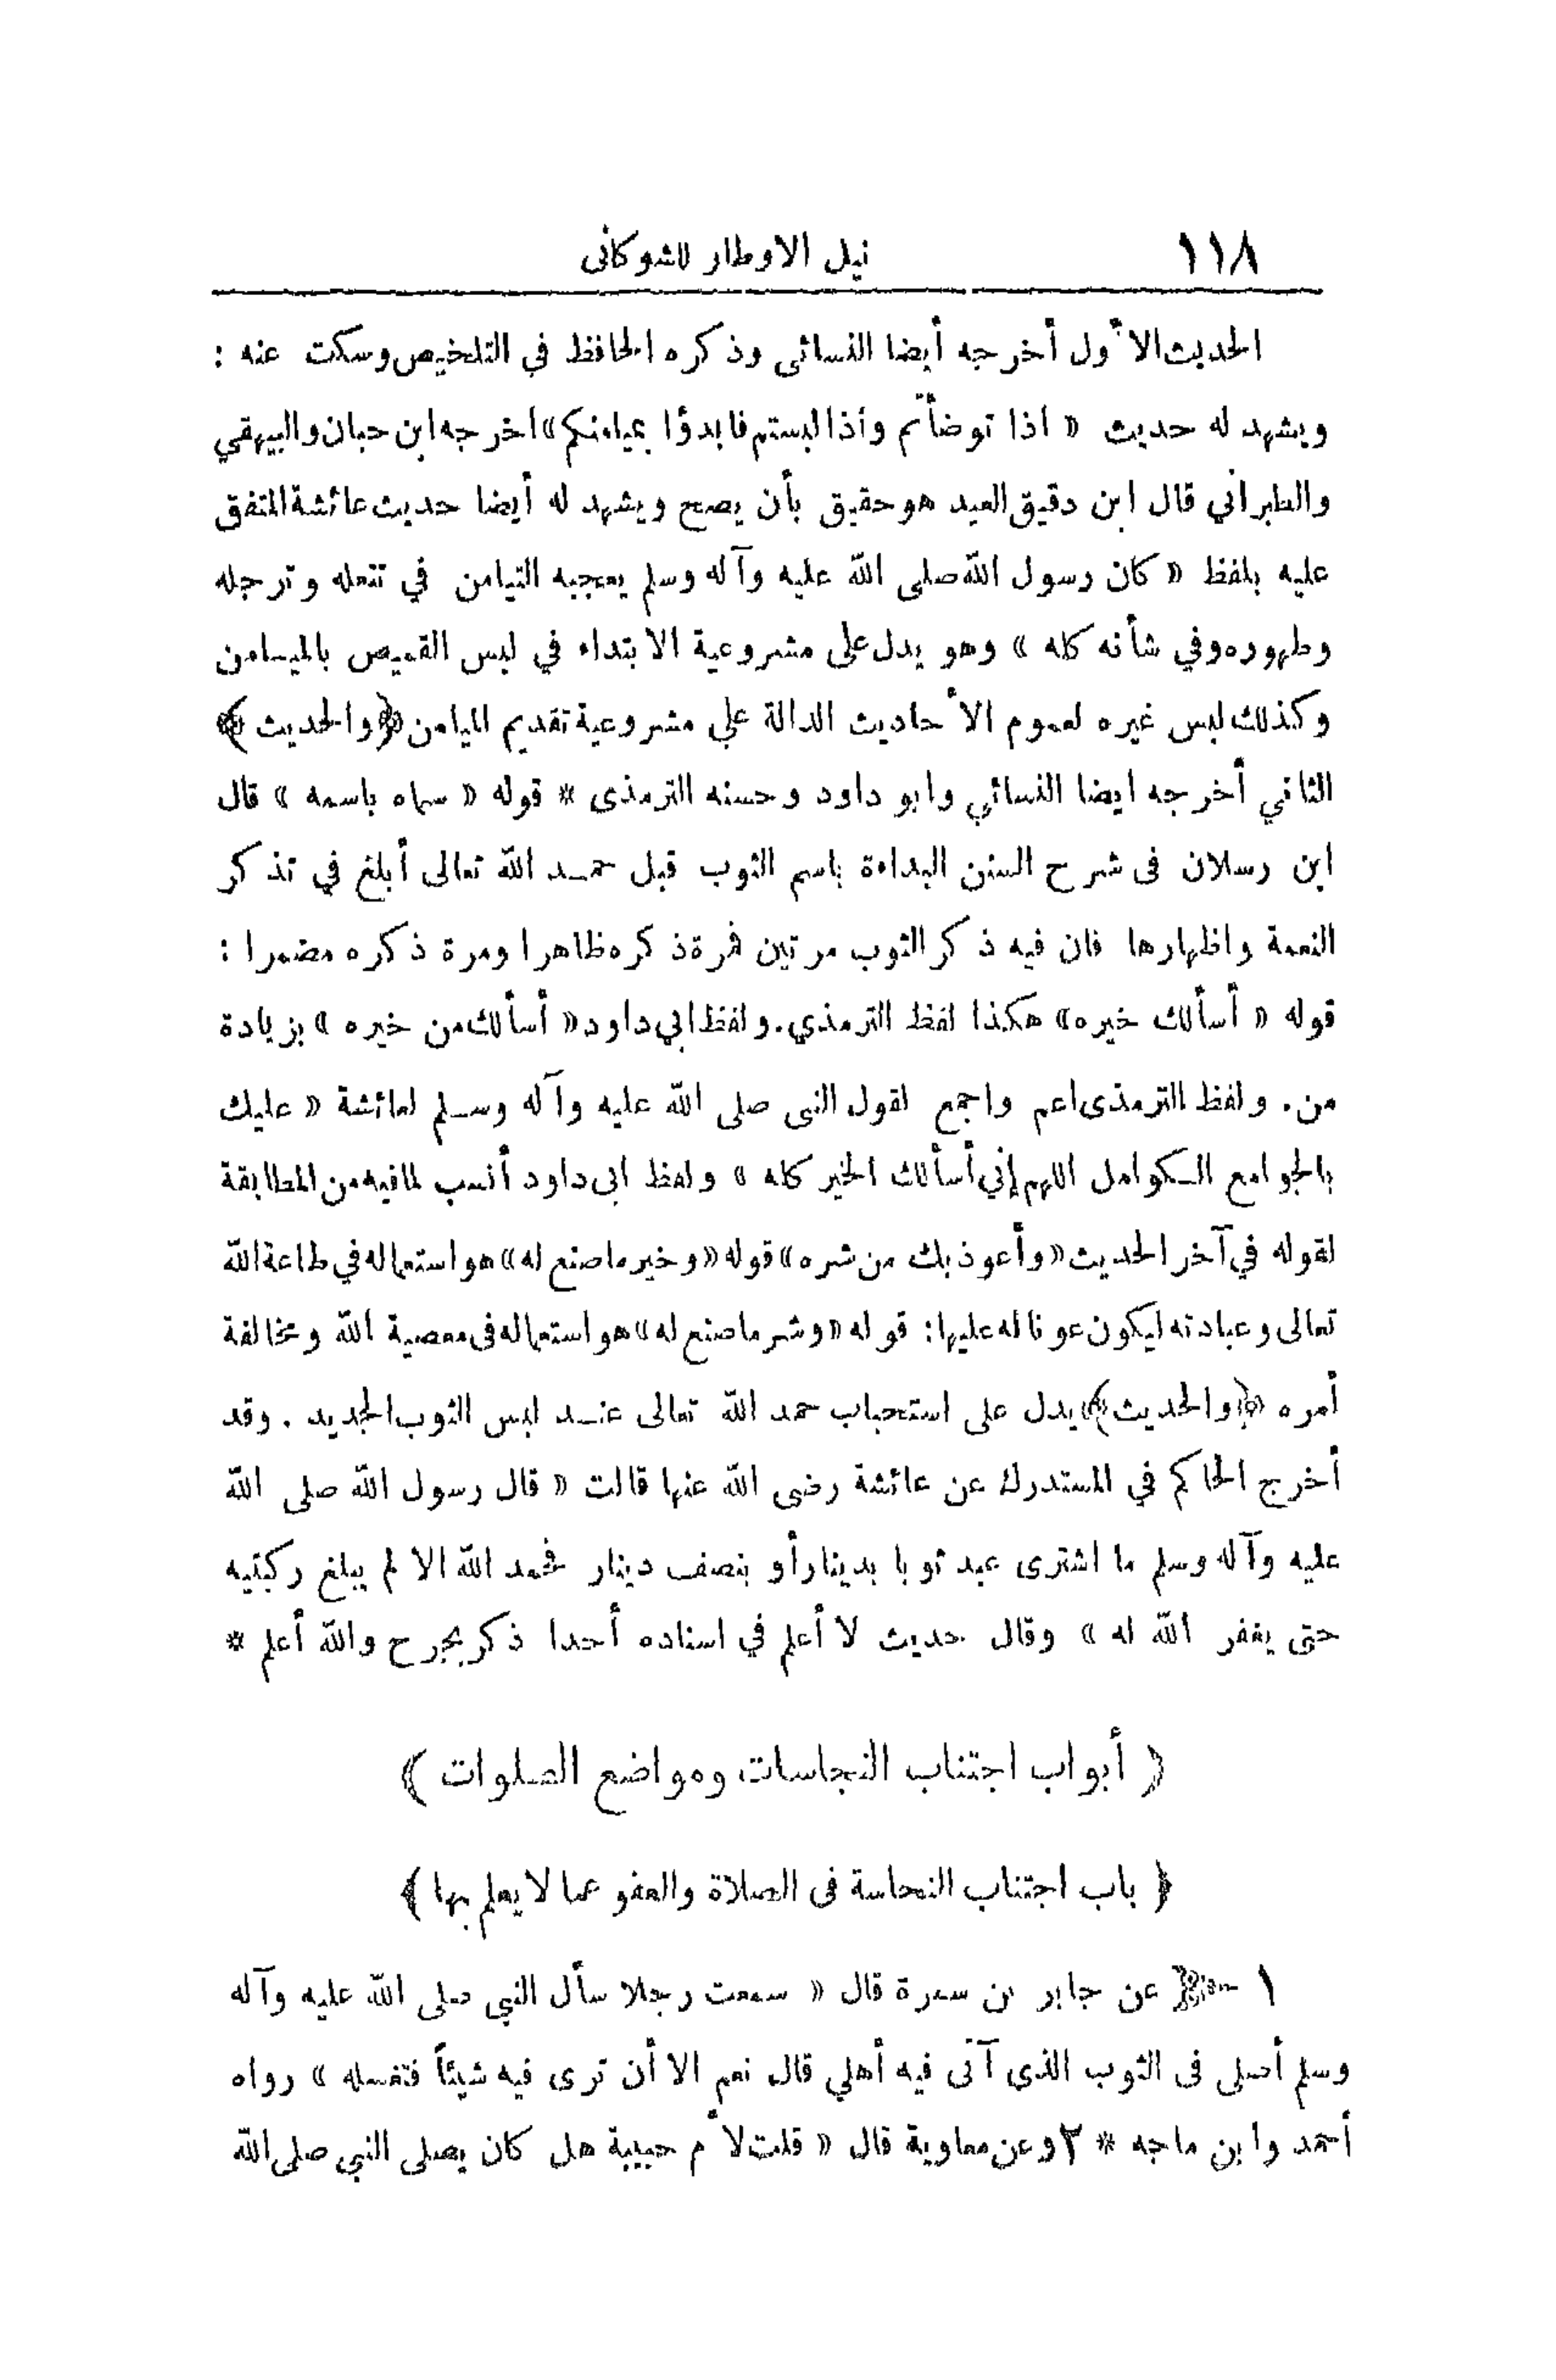 ١١٨ نيل الاوطار للشوكانى
الحديث الأول أخرجه أيضا النسائى وذكره الحافظ في التلخيص وسكت عنه :
ويشهد له حديث « اذا توضأتم واذا لبستم فابدؤا بميامنكم » اخرجه ابن حبان والبيهقي
والطبراني قال ابن دقيق العيد هو حقيق بأن يصح ويشهد له أيضا حديث عائشة المتفق
عليه بلفظ « كان رسول الله صلى الله عليه وآله وسلم يعجبه التيامن في تنعله وترجله
وطهوره وفي شأنه كله » وهو يدل على مشروعية الابتداء في لبس القميص بالميامن
وكذلك لبس غيره لعموم الأحاديث الدالة علي مشروعية تقديم الميامن ﴿ والحديث ﴾
الثاني أخرجه ايضا النسائي وابو داود وحسنه الترمذى * قوله « سماه باسمه » قال
ابن رسلان فى شرح السنن البداءة باسم الثوب قبل حمد الله تعالى أبلغ في تذكر
النعمة واظهارها فان فيه ذكر الثوب مرتين فمرة ذكره ظاهرا ومرة ذكره مضمرا :
قوله « أسألك خيره » هكذا لفظ الترمذي . ولفظ ابي داود « أسألك من خيره » بزيادة
من . ولفظ الترمذى اعم واجمع لقول النبى صلى الله عليه وآله وسلم لعائشة « عليك
بالجوامع الكوامل اللهم إني أسألك الخير كله » ولفظ ابى داود أنسب لما فيه من المطابقة
لقوله في آخر الحديث « وأعوذ بك من شره » قوله « وخير ما صنع له » هو استعماله في طاعة الله
تعالى وعبادته ليكون عونا له عليها : قوله « وشر ما صنع له » هو استعماله فى معصية الله ومخالفة
أمره ﴿ والحديث ﴾ يدل على استحباب حمد الله تعالى عند لبس الثوب الجديد . وقد
أخرج الحاكم في المستدرك عن عائشة رضى الله عنها قالت « قال رسول الله صلى الله
عليه وآله وسلم ما اشترى عبد ثوبا بدينار أو بنصف دينار فحمد الله الا لم يبلغ ركبتيه
حتى يغفر الله له » وقال حديث لا أعلم في اسناده أحدا ذكر بجرح والله أعلم *
( أبواب اجتناب النجاسات ومواضع الصلوات )
﴿ باب اجتناب النجاسة فى الصلاة والعفو عما لا يعلم بها ﴾
١ - عن جابر بن سمرة قال « سمعت رجلا سأل النبي صلى الله عليه وآله
وسلم أصلى فى الثوب الذى آتى فيه أهلي قال نعم الا أن ترى فيه شيئاً فتغسله » رواه
أحمد وابن ماجه * ٢ وعن معاوية قال « قلت لأم حبيبة هل كان يصلى النبي صلى الله